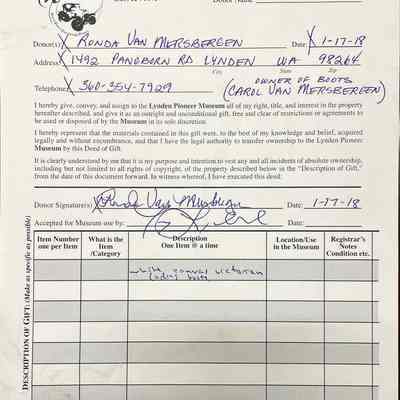 Donor Name
Donor(s) X RONDA VAN MERSBERGEN Date: X 1-17-18
Address: X 1492 PANGBORN RD. LYNDEN WA 98264
City State Zip
Telephone: X 360-354-7929 OWNER OF BOOTS
(CAROL VAN MERSBERGEN)
I hereby give, convey, and assign to the Lynden Pioneer Museum all of my right, title, and interest in the property
hereunder described, and give it as an outright and unconditional gift, free and clear of restrictions or agreements to
be used or disposed of by the Museum in its sole discretion.
I hereby represent that the materials contained in this gift were, to the best of my knowledge and belief, acquired
legally and without encumbrance, and that I have the legal authority to transfer ownership to the Lynden Pioneer
Museum by this Deed of Gift.
It is clearly understood by me that it is my purpose and intention to vest any and all incidents of absolute ownership,
including but not limited to all rights of copyright, of the property described below in the "Description of Gift,"
from the date of this document forward. In witness whereof, I have executed this deed:
Donor Signature(s) X Ronda Van Mersbergen Date: 1-17-18
Accepted for Museum use by: Date:
DESCRIPTION OF GIFT: (Make as specific as possible)
Item Number
one per Item
What is the
Item
/Category
Description
One Item @ a time
Location/Use
in the Museum
Registrar's
Notes
Condition etc.
white canvas victorian
ladies boots